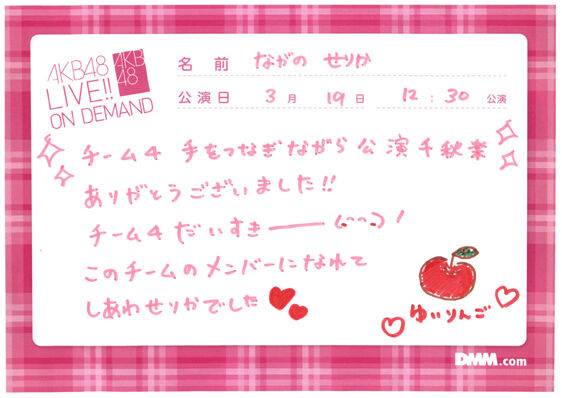 AKB48
LIVE!!
ON DEMAND
AKB
48
名前 ながの せりか
公演日 3月 19日 12:30 公演
チーム4 手をつなぎながら公演千秋楽
ありがとうございました!!
チーム4だいすきーーー!
このチームのメンバーになれて
しあわせりかでした
ゆいりんご
DMM.com